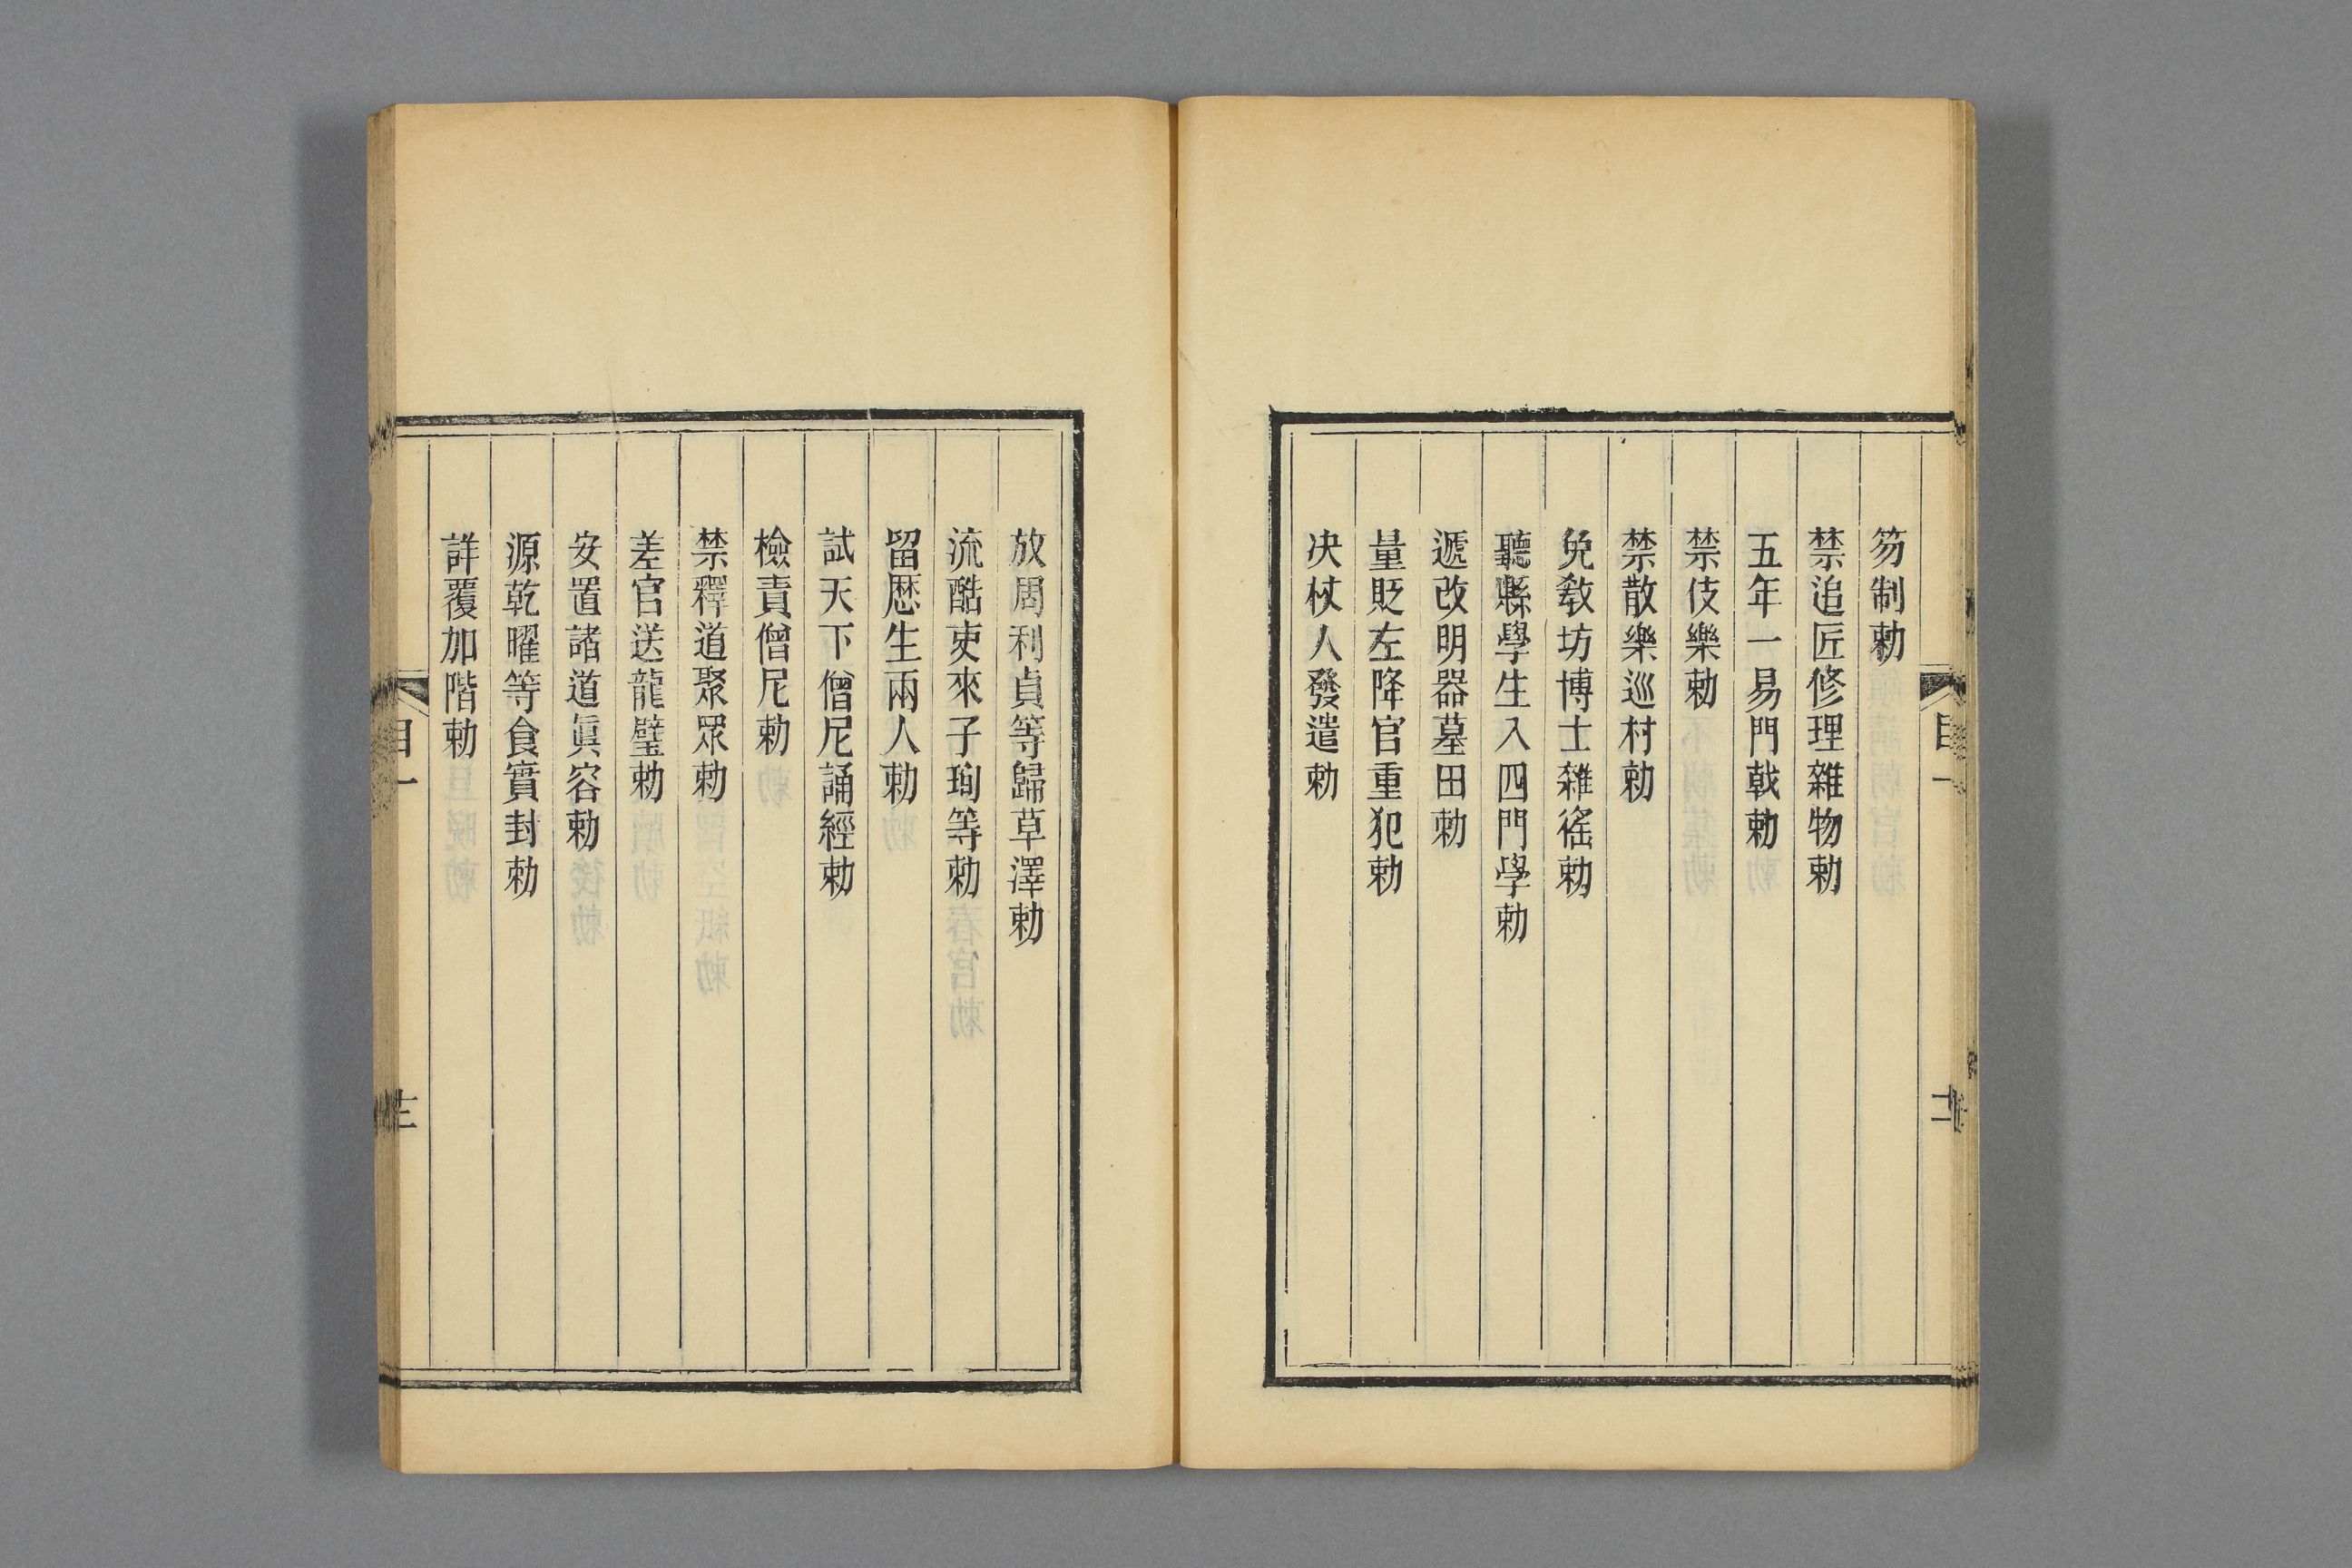 笏制勅
禁追匠修理雜物勅
五年一易門戟勅
禁伎樂勅
禁散樂巡村勅
免敎坊博士雜徭勅
聽縣學生入四門學勅
遞改明器墓田勅
量貶左降官重犯勅
决杖人發遣勅
放周利貞等歸草澤勅
流酷吏來子珣等勅
留厯生兩人勅
試天下僧尼誦經勅
檢責僧尼勅
禁釋道聚眾勅
差官送龍璧勅
安置諸道眞容勅
源乾曜等食實封勅
詳覆加階勅
目一